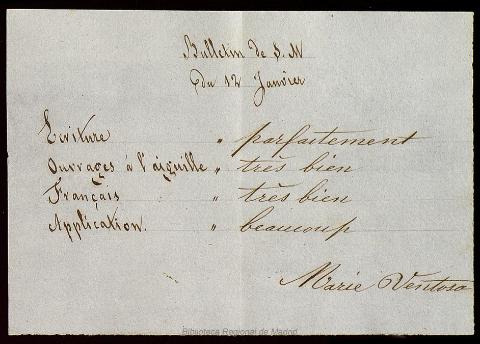 Bulletin de S. M
du 12 Janvier
Ecriture " parfaitement
Ouvrages á l'aiguille " très bien
Français " très bien
Application. " beaucoup
Marie Ventosa
Biblioteca Regional de Madrid